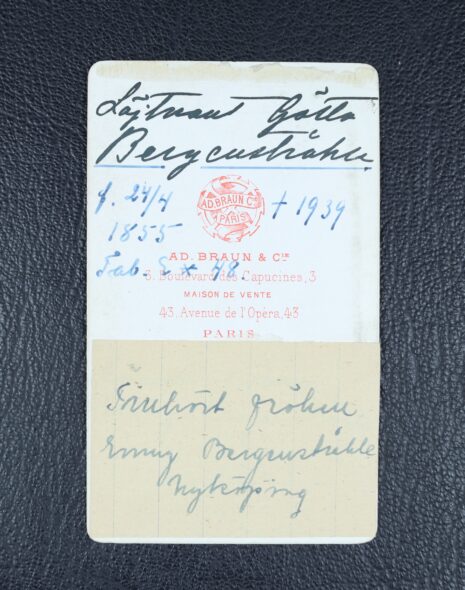 Löjtnant Gösta
Bergenstråhle
f. 24/4
1855
† 1939
AD. BRAUN & Cie
PARIS
AD. BRAUN & CIE
Tab 2 × 48.
3. Boulevard des Capucines, 3
MAISON DE VENTE
43. Avenue de l'Opéra, 43
PARIS
Tillhört fröken
Emmy Bergenstråhle
Nyköping